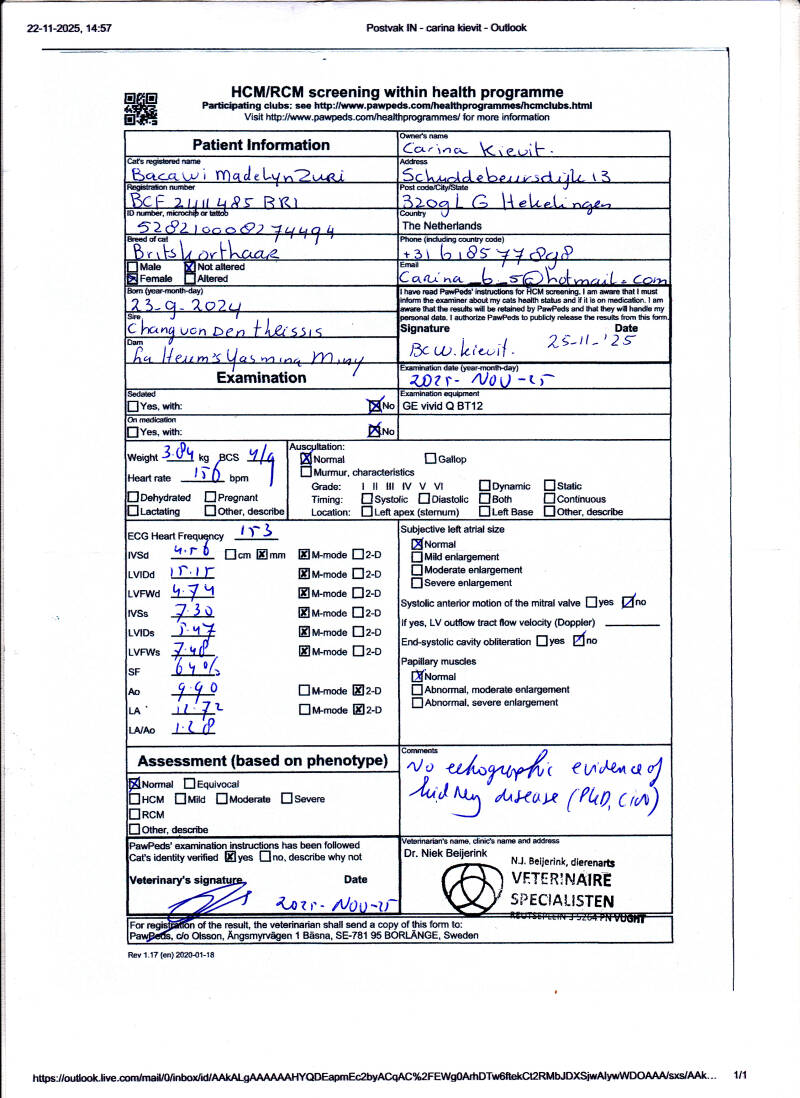 22-11-2025, 14:57
Postvak IN - carina kievit - Outlook
HCM/RCM screening within health programme
Participating clubs: see http://www.pawpeds.com/healthprogrammes/hcmclubs.html
Visit http://www.pawpeds.com/healthprogrammes/ for more information
Patient Information
Cat's registered name
Bacawi Madelyn Zuri
Registration number
BCF 2411485 BRI
ID number, microchip or tattoo
528210008274494
Breed of cat
Britskorthaar
Male Not altered
Female Altered
Born (year-month-day)
23-9-2024
Sire
Chang von Den Theissis
Dam
La Heum's Yasmina Miny
Owner's name
Carina Kievit.
Address
Schuddebeursdijk 13
Post code/City/State
3209LG Hekelingen
Country
The Netherlands
Phone (including country code)
+31 618577898
Email
Carina_6_5@hotmail.com
I have read PawPeds' instructions for HCM screening. I am aware that I must
inform the examiner about my cats health status and if it is on medication. I am
aware that the results will be retained by PawPeds and that they will handle my
personal data. I authorize PawPeds to publicly release the results from this form.
Signature Date
BCW. Kievit. 25-11-'25
Examination
Examination date (year-month-day)
2025-NOV-25
Sedated
Yes, with: No
Examination equipment
GE vivid Q BT12
On medication
Yes, with: No
Weight 3.84 kg BCS 4/9
Heart rate 156 bpm
Dehydrated Pregnant
Lactating Other, describe
Auscultation:
Normal Gallop
Murmur, characteristics
Grade: I II III IV V VI Dynamic Static
Timing: Systolic Diastolic Both Continuous
Location: Left apex (sternum) Left Base Other, describe
ECG Heart Frequency 153
IVSd 4.56 cm mm M-mode 2-D
LVIDd 15.15 M-mode 2-D
LVFWd 4.74 M-mode 2-D
IVSs 7.30 M-mode 2-D
LVIDs 5.47 M-mode 2-D
LVFWs 7.48 M-mode 2-D
SF 64%
Ao 9.90 M-mode 2-D
LA 12.72 M-mode 2-D
LA/Ao 1.28
Subjective left atrial size
Normal
Mild enlargement
Moderate enlargement
Severe enlargement
Systolic anterior motion of the mitral valve yes no
If yes, LV outflow tract flow velocity (Doppler)
End-systolic cavity obliteration yes no
Papillary muscles
Normal
Abnormal, moderate enlargement
Abnormal, severe enlargement
Assessment (based on phenotype)
Normal Equivocal
HCM Mild Moderate Severe
RCM
Other, describe
Comments
No echographic evidence of
kidney disease (PKD, CIN)
PawPeds' examination instructions has been followed
Cat's identity verified yes no, describe why not
Veterinary's signature Date
2025-NOV-25
Veterinarian's name, clinic's name and address
Dr. Niek Beijerink
N.J. Beijerink, dierenarts
VETERINAIRE
SPECIALISTEN
REUTSEPLEIN 3 5264 PN VUGHT
For registration of the result, the veterinarian shall send a copy of this form to:
PawPeds, c/o Olsson, Ängsmyrvägen 1 Bäsna, SE-781 95 BORLÄNGE, Sweden
Rev 1.17 (en) 2020-01-18
https://outlook.live.com/mail/0/inbox/id/AAkALgAAAAAAHYQDEapmEc2byACqAC%2FEWg0ArhDTw6ftekCt2RMbJDXSjwAlywWDOAAA/sxs/AAk...
1/1